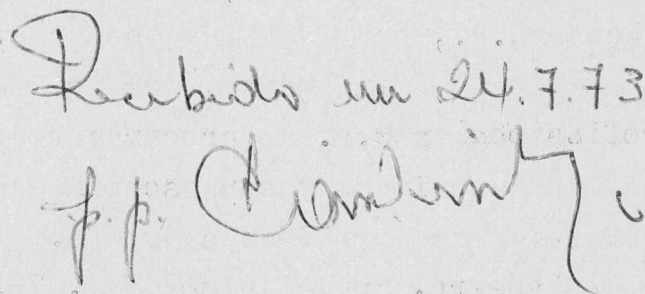 Recebido em 24.7.73
p.p.